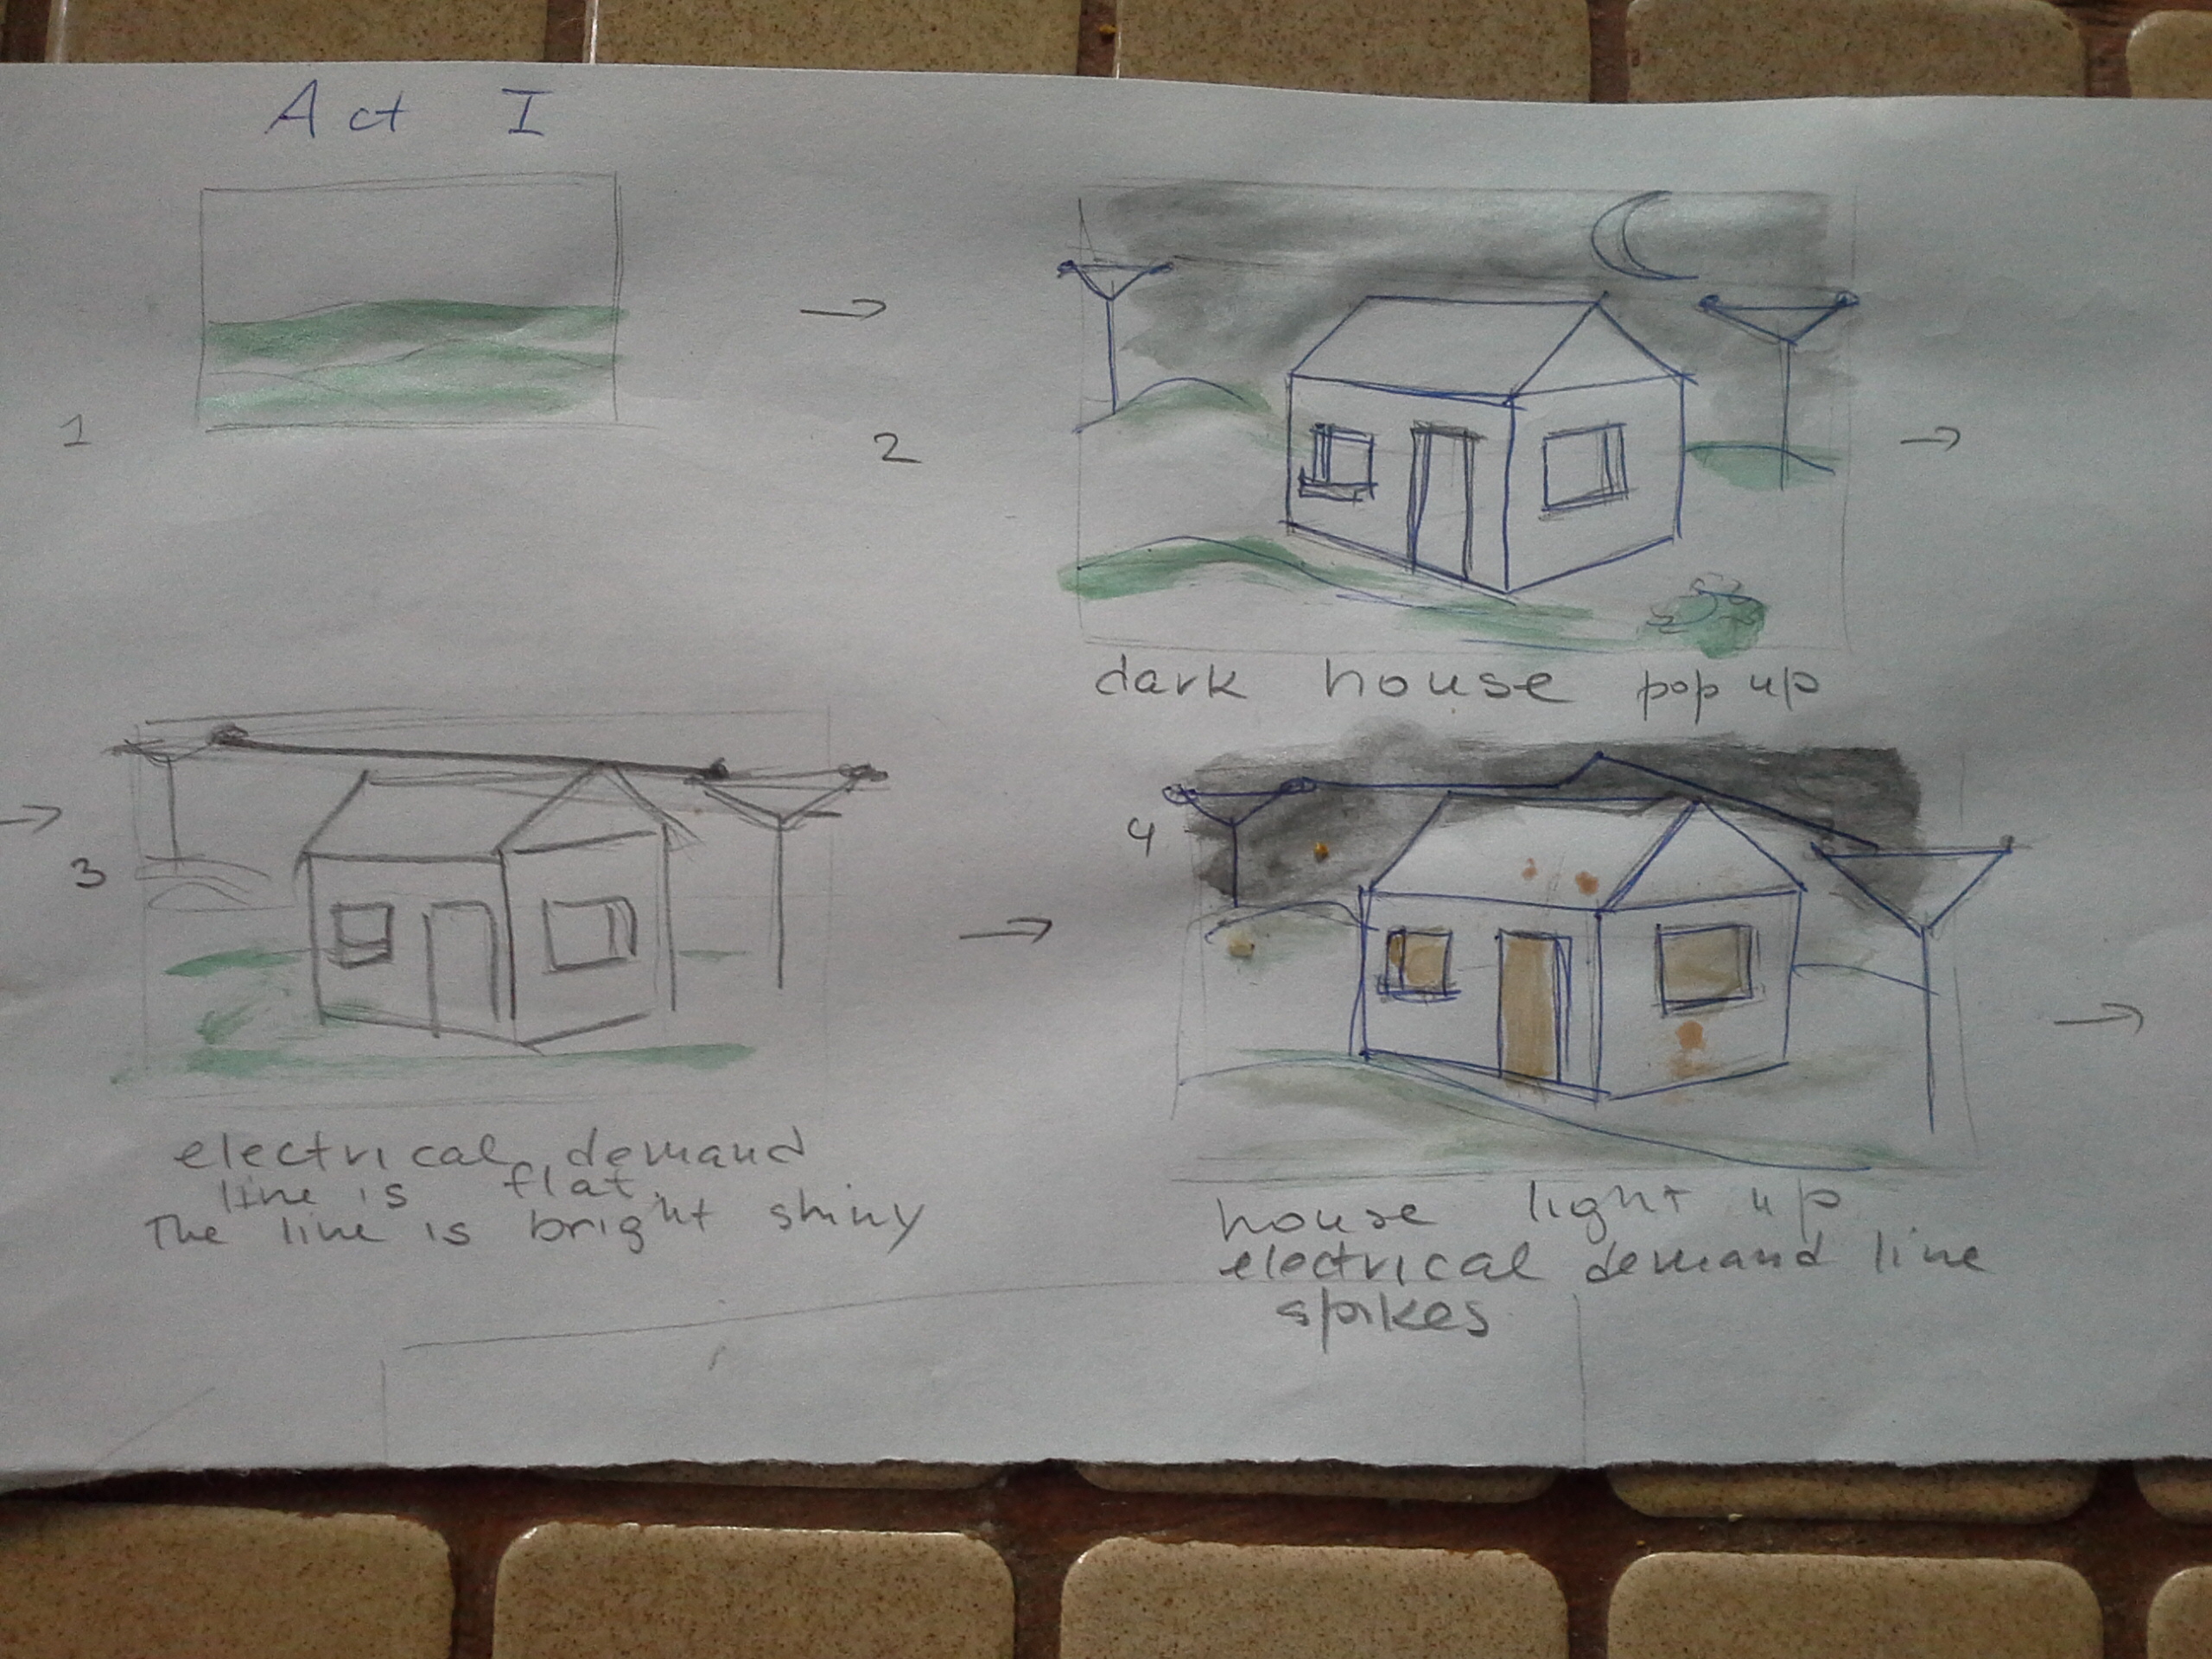 Act I
1
2
dark house pop up
3
electrical demand
line is flat.
The line is bright shiny
4
house light up
electrical demand line
spikes